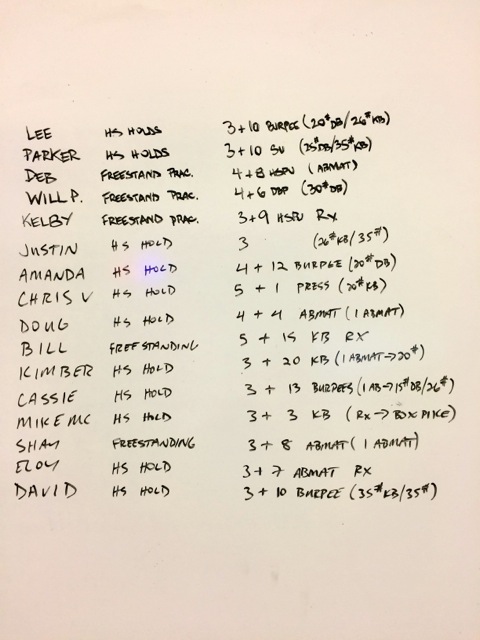 LEE HS HOLDS 3+10 BURPEE (20#DB/26#KB)
PARKER HS HOLDS 3+10 SU (25#DB/35#KB)
DEB FREESTAND PRAC. 4+8 HSPU (ABMAT)
WILL P. FREESTAND PRAC. 4+6 DBP (30#DB)
KELBY FREESTAND PRAC. 3+9 HSPU RX
JUSTIN HS HOLD 3 (26#KB/35#)
AMANDA HS HOLD 4 + 12 BURPEE (20#DB)
CHRIS V HS HOLD 5 + 1 PRESS (20#KB)
DOUG HS HOLD 4 + 4 ABMAT (1 ABMAT)
BILL FREESTANDING 5 + 15 KB RX
KIMBER HS HOLD 3 + 20 KB (1 ABMAT→20#)
CASSIE HS HOLD 3 + 13 BURPEES (1 AB→15#DB/26#)
MIKE MC HS HOLD 3 + 3 KB (RX → BOX PIKE)
SHAY FREESTANDING 3 + 8 ABMAT (1 ABMAT)
ELOY HS HOLD 3+7 ABMAT RX
DAVID HS HOLD 3 + 10 BURPEE (35#KB/35#)